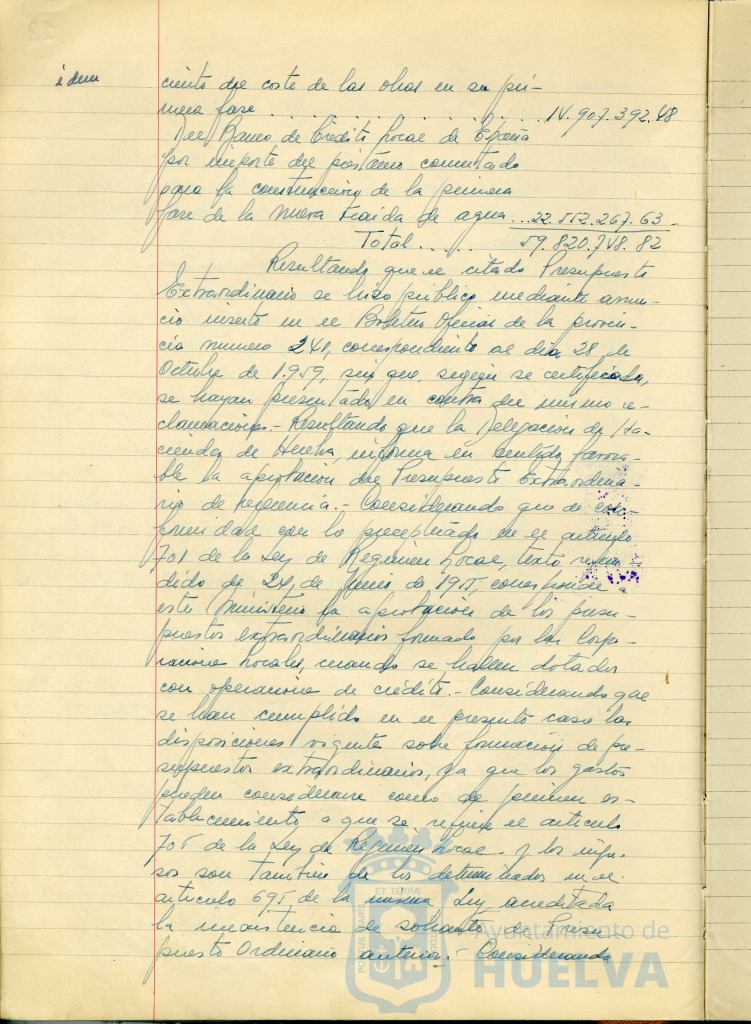 idem
ciento del coste de las obras en su pri-
mera fase . . . . . . . . . . . . 14.907.392.48
Del Banco de Crédito Local de España
por importe del préstamo concertado
para la construcción de la primera
fase de la nueva traida de agua ... 22.552.267.63
Total . . . . . 59.820.748.82
Resultando que el citado Presupuesto
Extraordinario se hizo público mediante anun-
cio inserto en el Boletin Oficial de la provin-
cia numero 241, correspondiente al dia 28 de
Octubre de 1.959, sin que, según se certificada,
se hayan presentado en contra del mismo re-
clamaciones.- Resultando que la Delegación de Ha-
cienda de Huelva, informa en sentido favora-
ble la aprobación del Presupuesto Extraordina-
rio de referencia.- Considerando que de con-
formidad con lo preceptuado en el articulo
701 de la Ley de Regimen Local, texto refun-
dido de 24, de Junio de 1955, corresponde a
este Ministerio la aprobación de los presu-
puestos extraordinarios formados por las Corpo-
raciones Locales, cuando se hallen dotados
con operaciones de crédito.- Considerando que
se han cumplido en el presente caso las
disposiciones vigentes sobre formación de pre-
supuestos extraordinarios, ya que los gastos
pueden considerarse como de primer es-
tablecimiento a que se refiere el articulo
705 de la Ley de Regimen Local. y los ingre-
sos son tambien de los determinados en el
articulo 695 de la misma Ley, acreditada
la inexistencia de sobrante de Presu-
puesto Ordinario anterior.- Considerando
PORTUS MARIS ET TERRAE
Ayuntamiento de
HUELVA